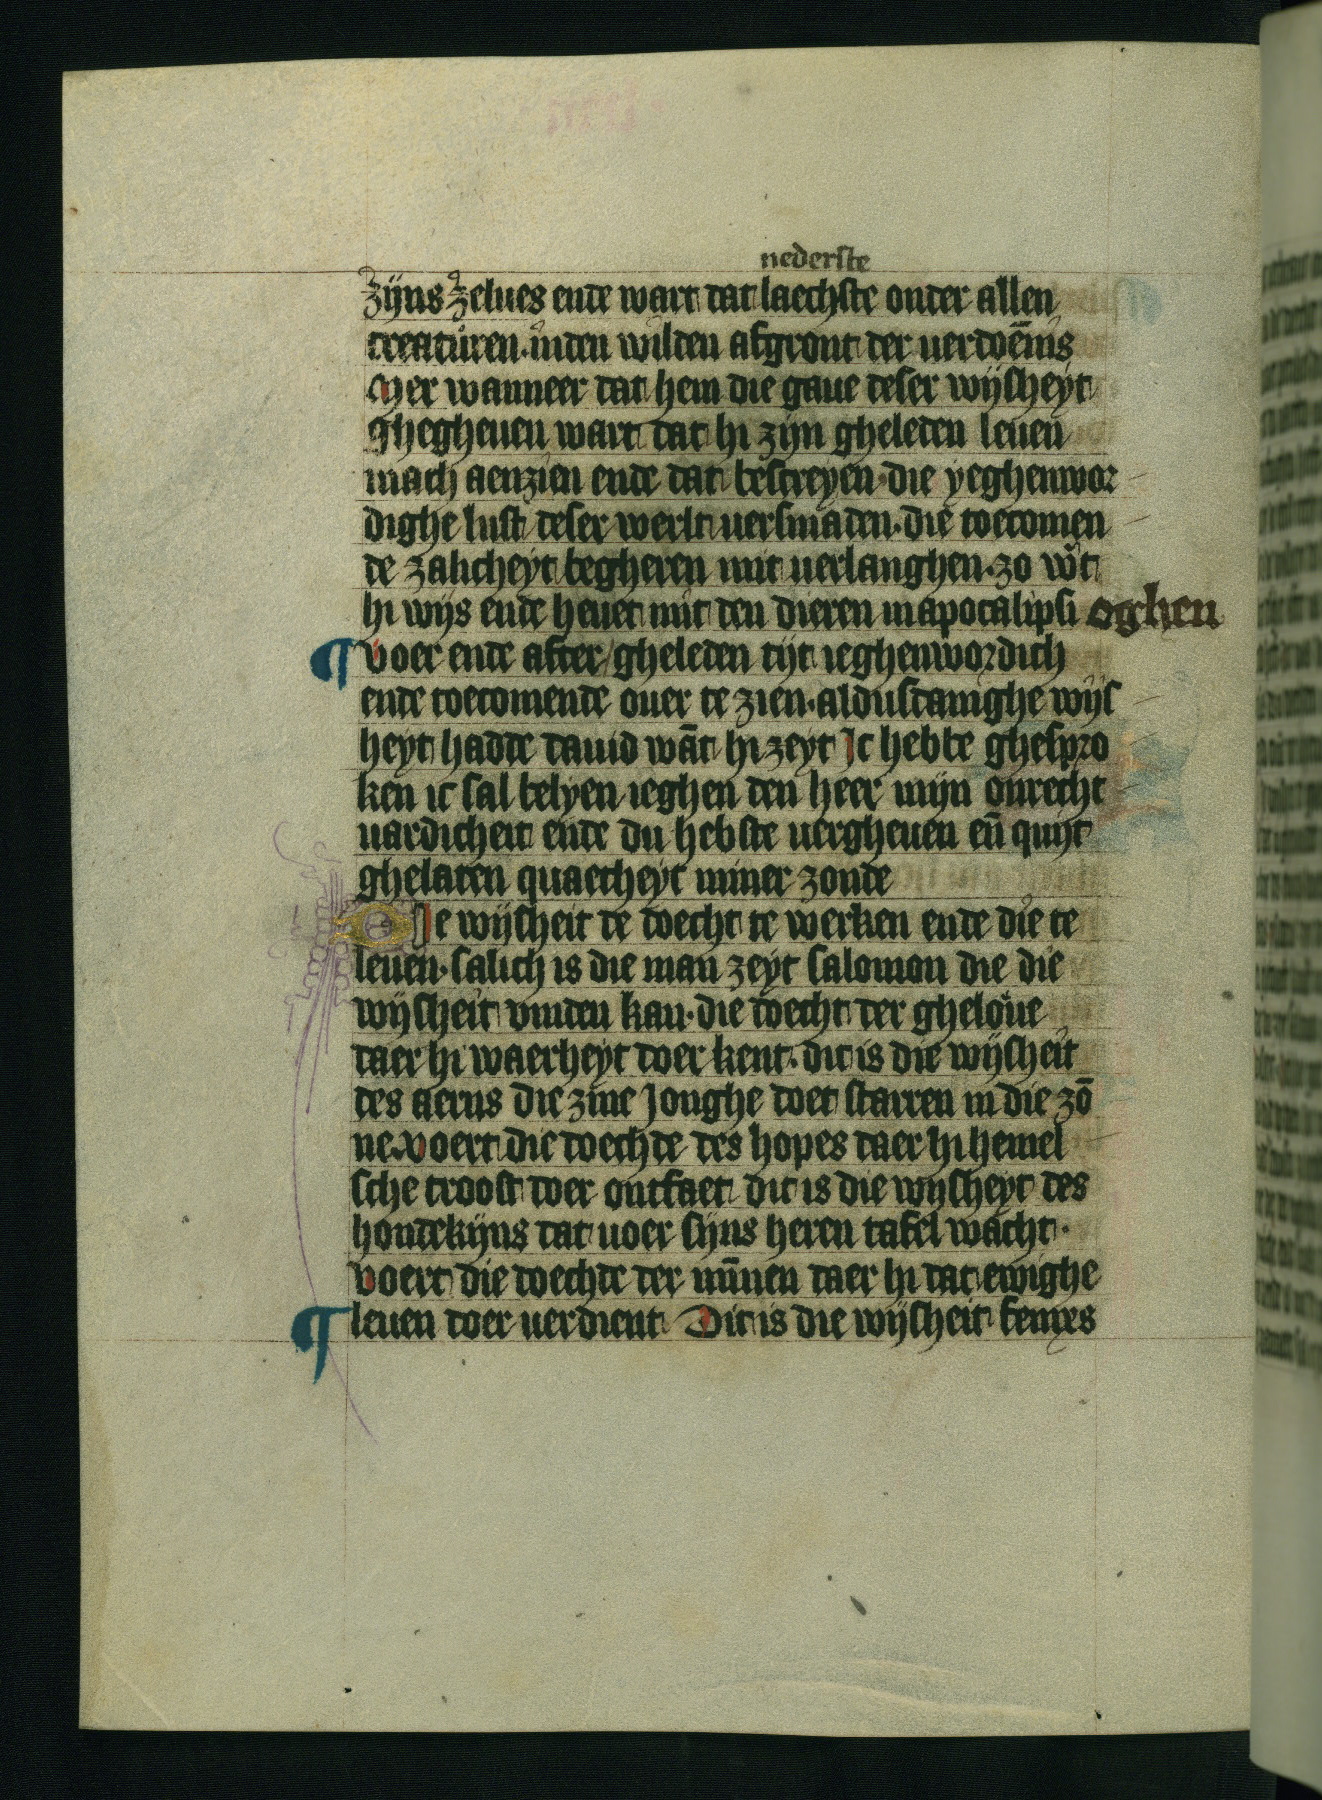 nederste
zijns zelues ende wart dat laechste onder allen
creaturen. inden wilden afgront der uerdoēnis
Mer wanneer dat hem die gaue deser wijsheyt
ghegheuen wart dat hi zijn gheleden leuen
mach aenzien ende dat bescreyen. die yeghenwor
dighe lust deser werlt uersmaden. die toecomen
de zalicheyt begheren mit uerlanghen. zo wt
hi wijs ende heuet mit den dieren in apocalipsi oghen
¶ voer ende after / gheleden tijt ieghenwordich
ende toecomende ouer te zien. aldustanighe wijs
heyt hadde dauid wāt hi zeyt Ic hebbe ghespro
ken ic sal belyen ieghen den heer mijn onrecht
uardicheit ende du hebste uergheuen eñ quijt
ghelaten quaetheyt miner zonde
Die wijsheit te doecht te werken ende die te
leuen. salich is die man zeyt salomon die die
wijsheit vinden kan. die doecht der gheloue
daer hi waerheyt doer kent. dit is die wijsheit
des aerns die zine Jonghe doet starren in die zō
ne. voert die doechde des hopes daer hi hemel
sche troost doer ontfaet dit is die wijsheyt des
hondekijns dat uoer sijns heren tafel wacht.
voert die doechde der mīnen daer hi dat ewighe
¶ leuen doer uerdient Dit is die wijsheit fenixs